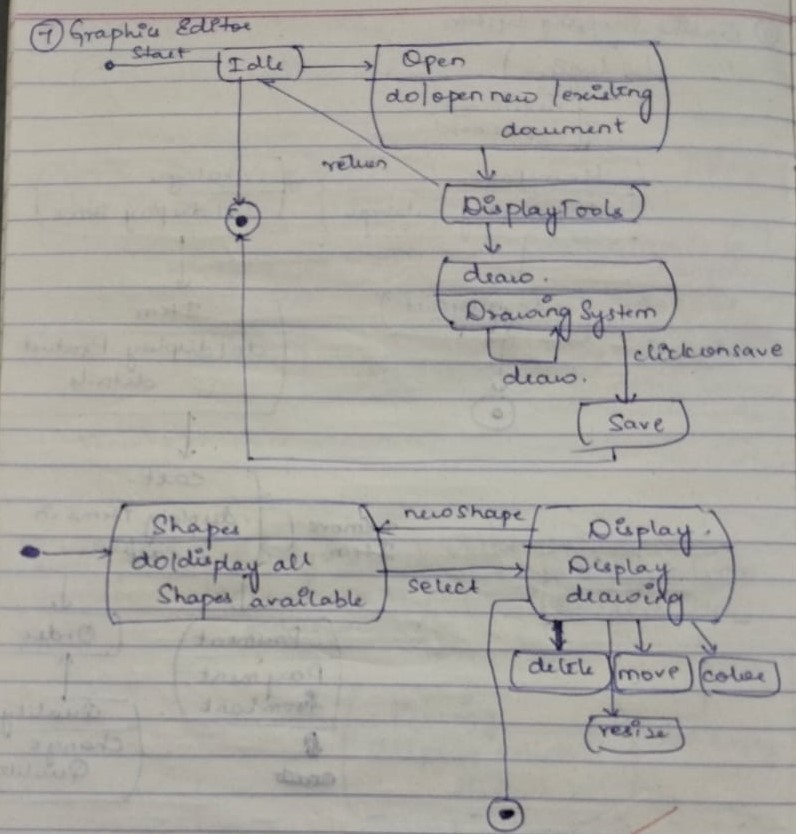 7 Graphic Editor
Start
Idle
Open
do/open new /existing
document
return
Display Tools
draw.
Drawing System
draw.
click on save
Save
Shapes
do/display all
Shapes available
new shape
select
Display.
Display
drawing
delete
move
color
resize